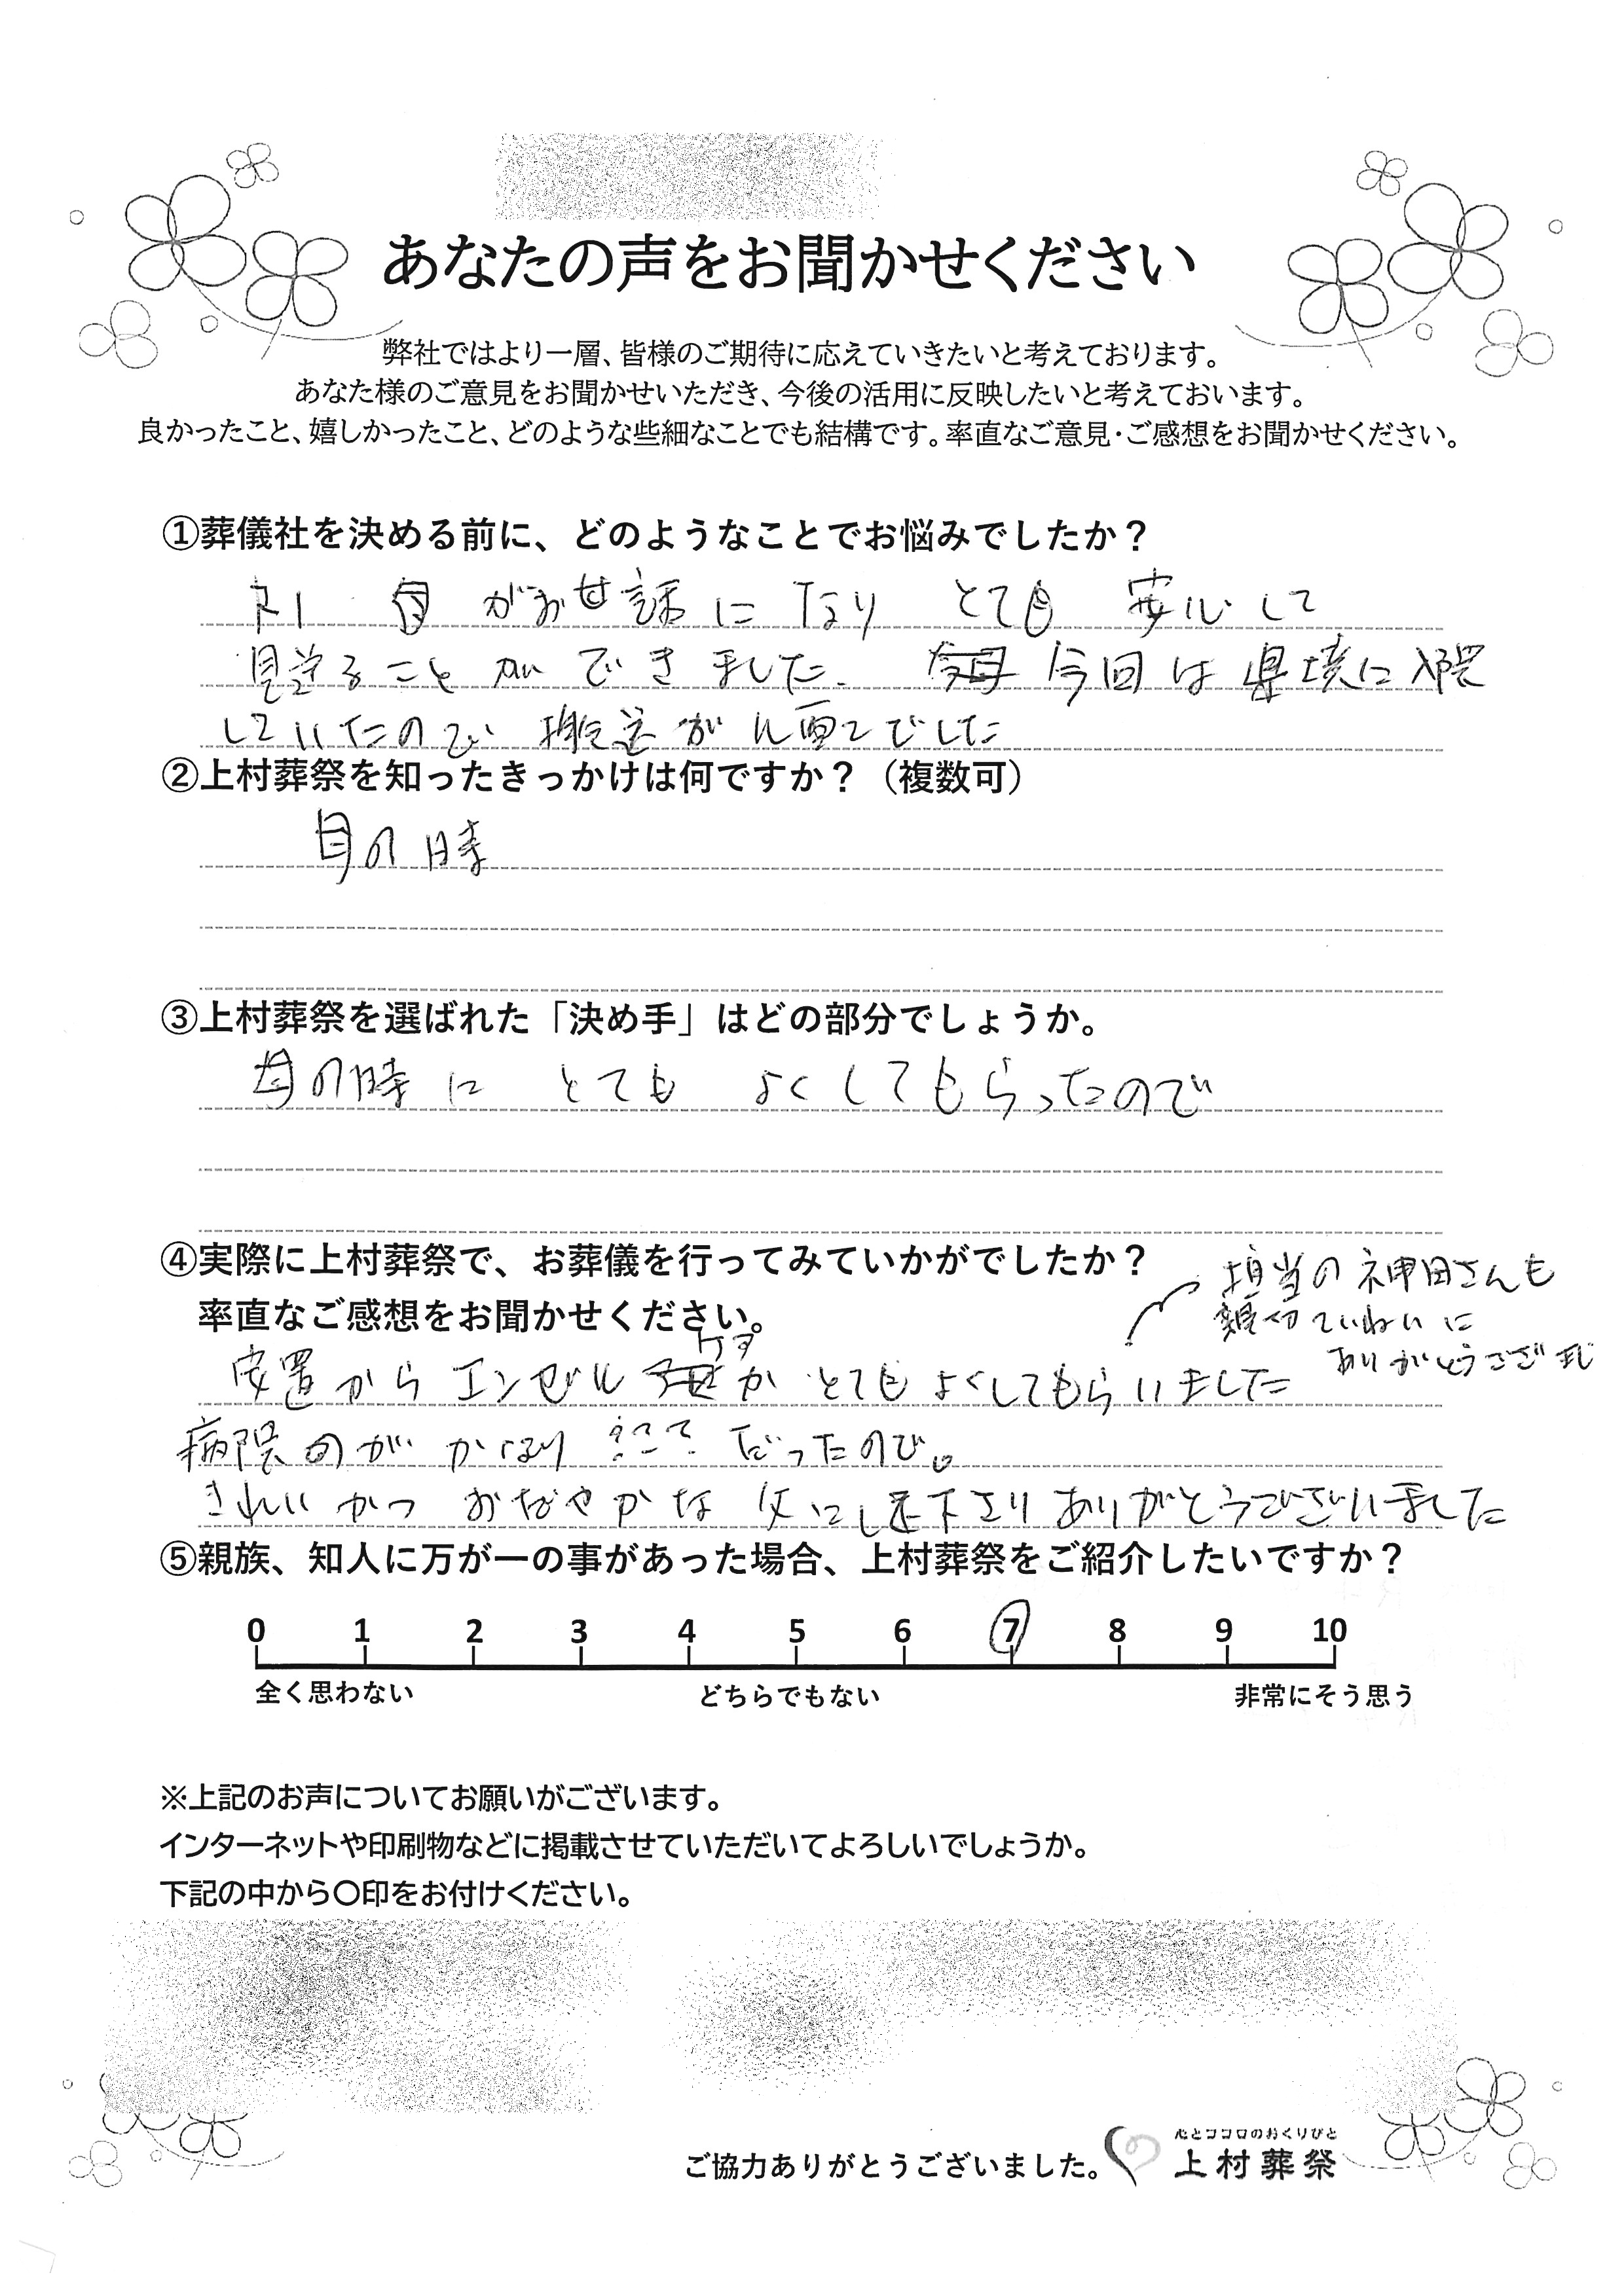 あなたの声をお聞かせください
弊社ではより一層、皆様のご期待に応えていきたいと考えております。
あなた様のご意見をお聞かせいただき、今後の活用に反映したいと考えておいます。
良かったこと、嬉しかったこと、どのような些細なことでも結構です。率直なご意見・ご感想をお聞かせください。
①葬儀社を決める前に、どのようなことでお悩みでしたか？
母がお世話になり とても 安心して
見送ることができました。 今回は県境に入院
していたので 搬送が
でした
②上村葬祭を知ったきっかけは何ですか？（複数可）
母の時
③上村葬祭を選ばれた「決め手」はどの部分でしょうか。
母の時に とても よくしてもらったので
④実際に上村葬祭で、お葬儀を行ってみていかがでしたか？
率直なご感想をお聞かせください。
担当の神田さんも
親切ていねいに
ありがとうござ
安置からエンゼルケアが とてもよくしてもらいました
病院のが かなり
だったので。
きれいかつ おだやかな 父にし
下さり ありがとうございました
⑤親族、知人に万が一の事があった場合、上村葬祭をご紹介したいですか？
0 1 2 3 4 5 6 7 8 9 10
全く思わない どちらでもない 非常にそう思う
※上記のお声についてお願いがございます。
インターネットや印刷物などに掲載させていただいてよろしいでしょうか。
下記の中から〇印をお付けください。
心とココロのおくりびと
ご協力ありがとうございました。 上村葬祭